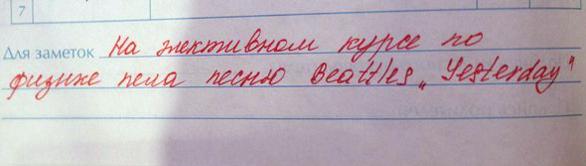 7
Для заметок На элективном курсе по
физике пела песню Beattles „Yesterday"